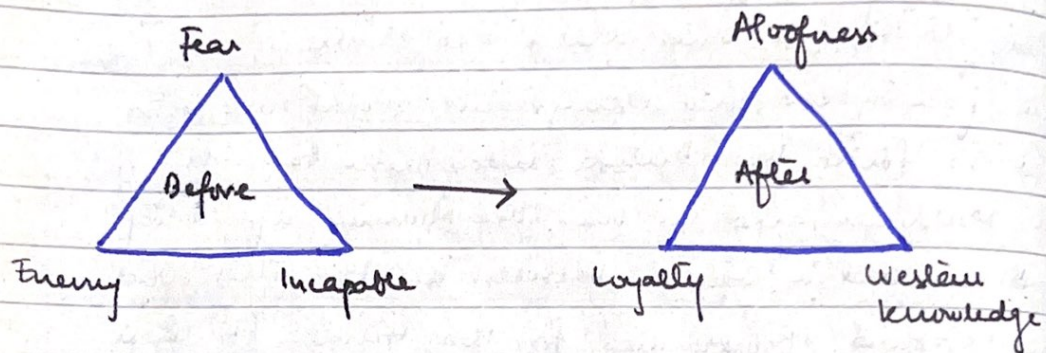 Fear
Before
Enemy Incapable
Aloofness
After
Loyalty Western
knowledge